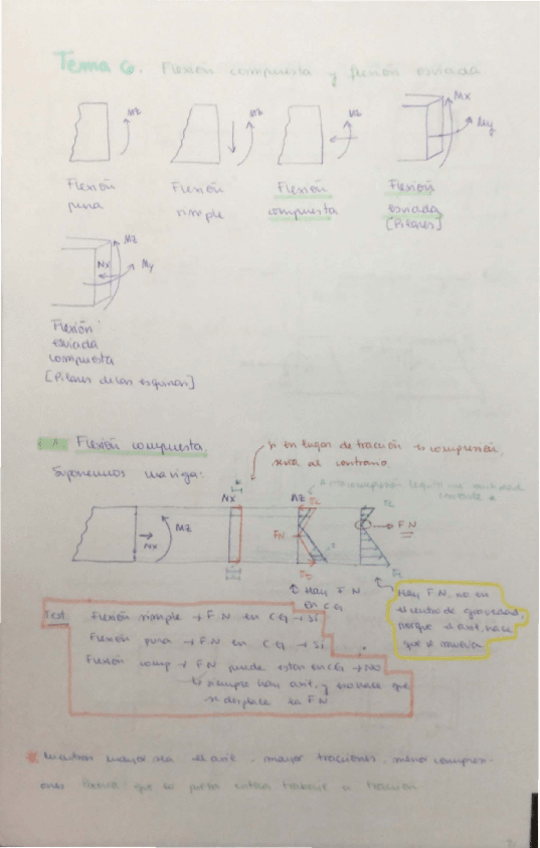 Tema 6. Flexión compuesta y flexión esviada
Mz Mz Mz Mx My
Flexión pura
Flexión simple
Flexión compuesta
Flexión esviada
[Pilares]
Mz
Nx My
Flexión esviada compuesta
[Pilares de las esquinas]
Flexión compuesta.
si en lugar de tracción es compresión,
será al contrario
Suponemos una viga:
Nx Mz
Nx Mz
FN FN
Hay F N
en CG
Hay F.N. no en
el centro de gravedad,
porque el axil hace
que se mueva
Test Flexión simple → F N en CG → Sí
Flexión pura → F N en CG → Sí
Flexión comp → F N puede estar en CG → No
↳ siempre hay axil, y eso hace que
se desplace la F N
* Mientras mayor sea el axil, mayor tracciones, menor compresi-
ones que la pieza entera trabaje a tracción